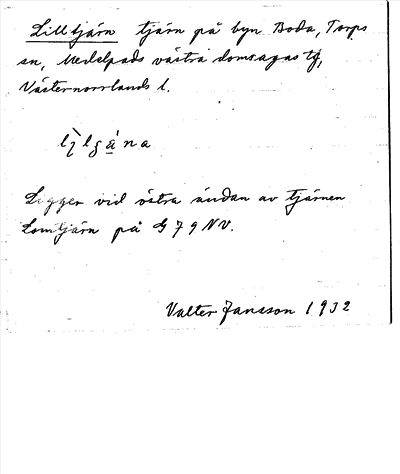 Lilltjärn tjärn på byn Boda, Torps
sn, Medelpads västra domsagas tg,
Västernorrlands l.
Ligger vid östra ändan av tjärnen
Lomtjärn på G 79 NV.
Valter Jansson 1932